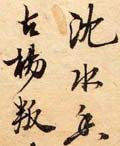 沈水香
古楊叛